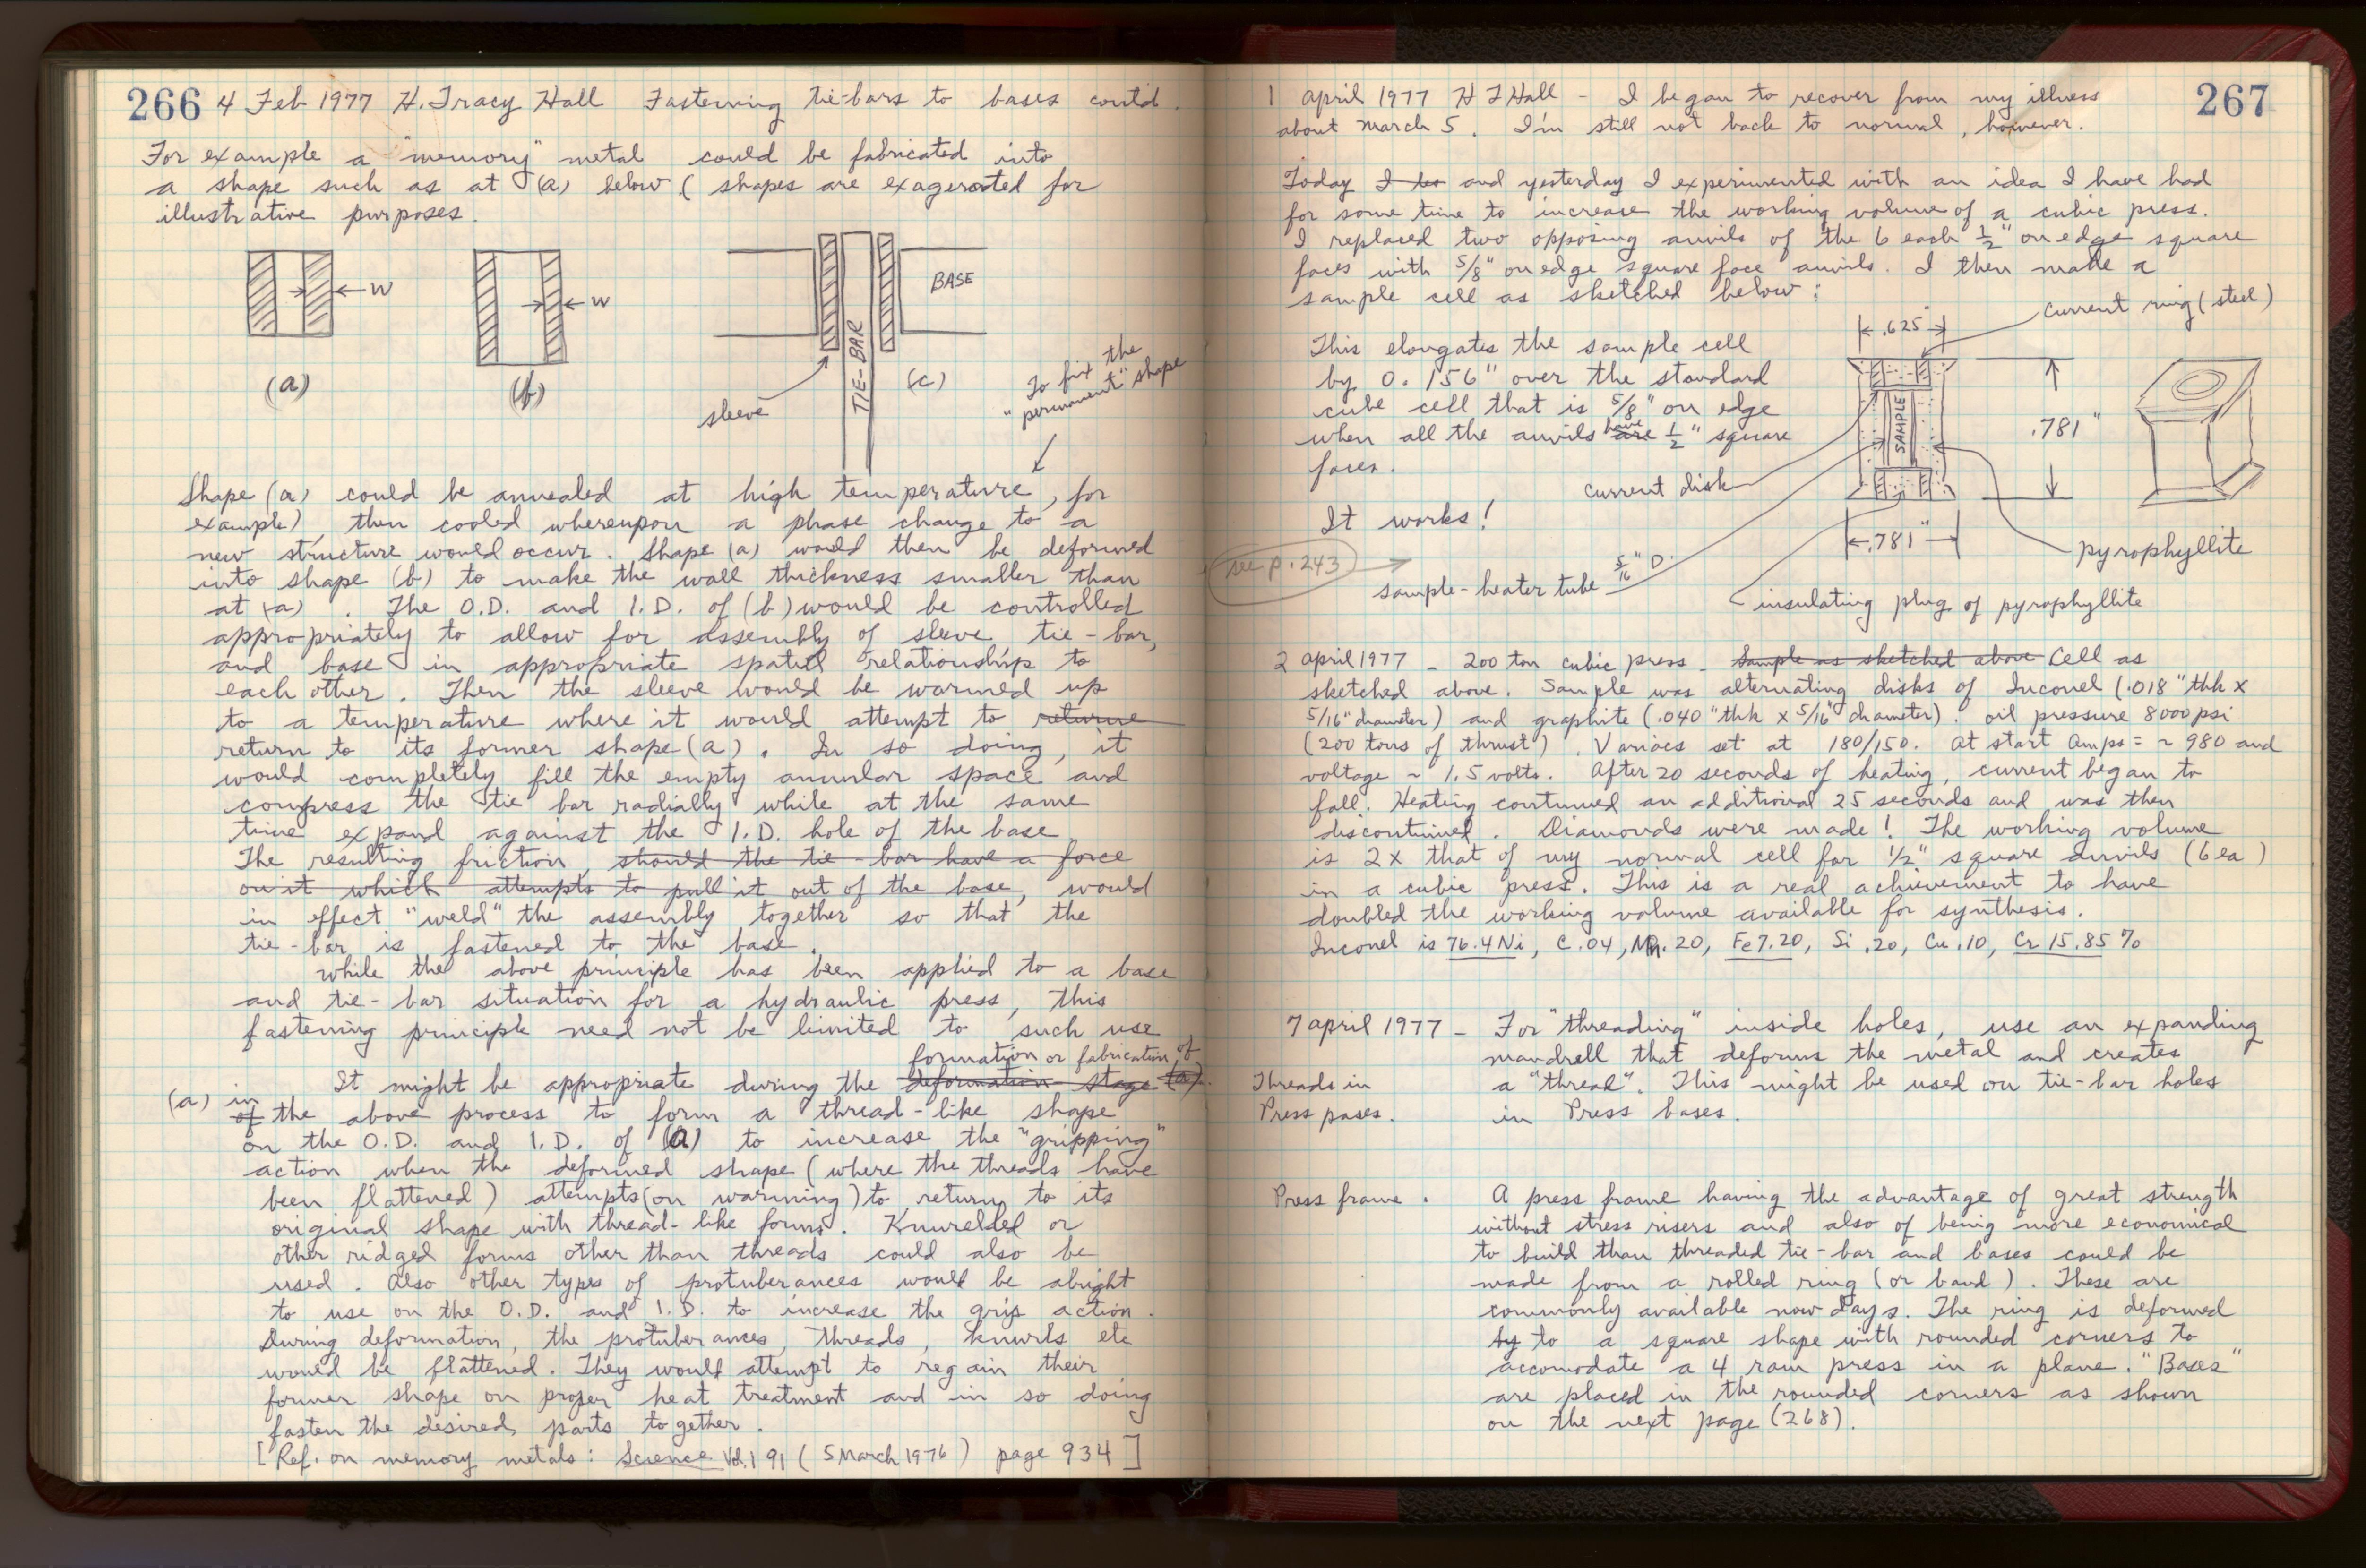 266 4 Feb 1977 H. Tracy Hall Fastening tie-bars to bases contd.
For example a "memory" metal could be fabricated into
a shape such as at (a) below (shapes are exagerated for
illustrative purposes.
W
W
BASE
TIE-BAR
(a)
(b)
(c)
sleeve
To fix the
"permanent" shape
Shape (a) could be annealed at high temperature, for
example), then cooled whereupon a phase change to a
new structure would occur. Shape (a) would then be deformed
into shape (b) to make the wall thickness smaller than
at (a). The O.D. and I.D. of (b) would be controlled
appropriately to allow for assembly of sleeve, tie-bar,
and base in appropriate spatial relationship to
each other. Then the sleeve would be warmed up
to a temperature where it would attempt to returne
return to its former shape (a). In so doing, it
would completely fill the empty annular space and
compress the tie bar radially while at the same
time expand against the I.D. hole of the base
The resulting friction, should the tie-bar have a force
on it which attempts to pull it out of the base, would
in effect "weld" the assembly together so that the
tie-bar is fastened to the base.
While the above principle has been applied to a base
and tie-bar situation for a hydraulic press, this
fastening principle need not be limited to such use
formation or fabrication of
It might be appropriate during the deformation stage (a).
(a) in
of the above process to form a thread-like shape
on the O.D. and I.D. of (a) to increase the "gripping"
action when the deformed shape (where the threads have
been flattened) attempts (on warming) to return to its
original shape with thread-like forms. Knurelded or
other ridged forms other than threads could also be
used. Also other types of protuberances would be alright
to use on the O.D. and I.D. to increase the grip action.
During deformation, the protuberances, threads, knurls etc
would be flattened. They would attempt to regain their
former shape on proper heat treatment and in so doing
fasten the desired parts together.
[Ref. on memory metals: Science Vol. 191 (5 March 1976) page 934]
267
1 april 1977 H T Hall - I began to recover from my illness
about March 5. I'm still not back to normal, however.
Today I and yesterday I experimented with an idea I have had
for some time to increase the working volume of a cubic press.
I replaced two opposing anvils of the 6 each 1/2" on edge square
faces with 5/8" on edge square face anvils. I then made a
sample cell as sketched below:
current ring (steel)
.625"
This elongates the sample cell
by 0.156" over the standard
cube cell that is 5/8" on edge
when all the anvils are have 1/2" square
faces.
SAMPLE
.781"
current disk
It works!
.781"
pyrophyllite
see p. 243
sample-heater tube 5/16" D.
insulating plug of pyrophyllite
2 april 1977 - 200 ton cubic press - Sample as sketched above Cell as
sketched above. Sample was alternating disks of Inconel (.018" thk x
5/16" diameter) and graphite (.040" thk x 5/16" diameter). oil pressure 8000 psi
(200 tons of thrust). Variacs set at 180/150. At start Amps = ~ 980 and
voltage ~ 1.5 volts. After 20 seconds of heating, current began to
fall. Heating continued an additional 25 seconds and was then
discontinued. Diamonds were made! The working volume
is 2x that of my normal cell for 1/2" square anvils (6 ea)
in a cubic press. This is a real achievement to have
doubled the working volume available for synthesis.
Inconel is 76.4 Ni, C .04, Mn .20, Fe 7.20, Si .20, Cu .10, Cr 15.85 %
7 april 1977 - For "threading" inside holes, use an expanding
mandrell that deforms the metal and creates
Threads in
a "thread". This might be used on tie-bar holes
Press pases.
in Press bases.
Press frame.
A press frame having the advantage of great strength
without stress risers and also of being more economical
to build than threaded tie-bar and bases could be
made from a rolled ring (or band). These are
commonly available now days. The ring is deformed
to a square shape with rounded corners to
accomodate a 4 ram press in a plane. "Bases"
are placed in the rounded corners as shown
on the next page (268).